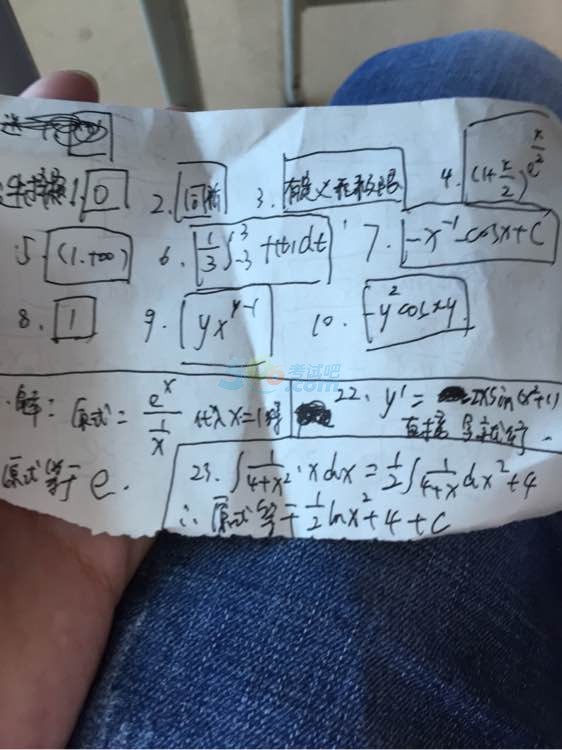 选择题 1. 0 2. 同前 3. 有定义 4. (1+x/2)e^(x/2)
5. (1.+∞) 6. 1/3∫₋₃³ f(t)dt 7. -x⁻¹-cosx+C
8. 1 9. yx^(y-1) 10. -y²cosxy
解: 原式= e^x / (1/x) 代入x=1得
原式等于 e.
22. y'= -2xsin(x²+1)
直接 导就行.
23. ∫ 1/(4+x²) · xdx = 1/2 ∫ 1/(4+x) dx²+4
∴原式等于 1/2 lnx²+4+C
考试吧
.com